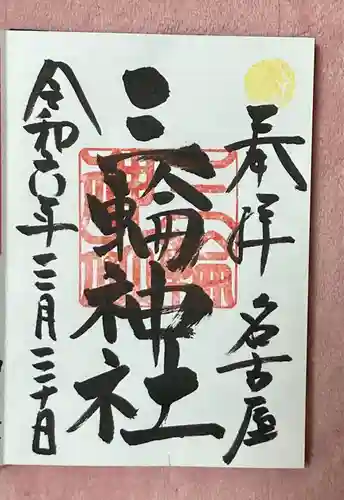 奉拝 名古屋
三輪神社
令和年三月三十日